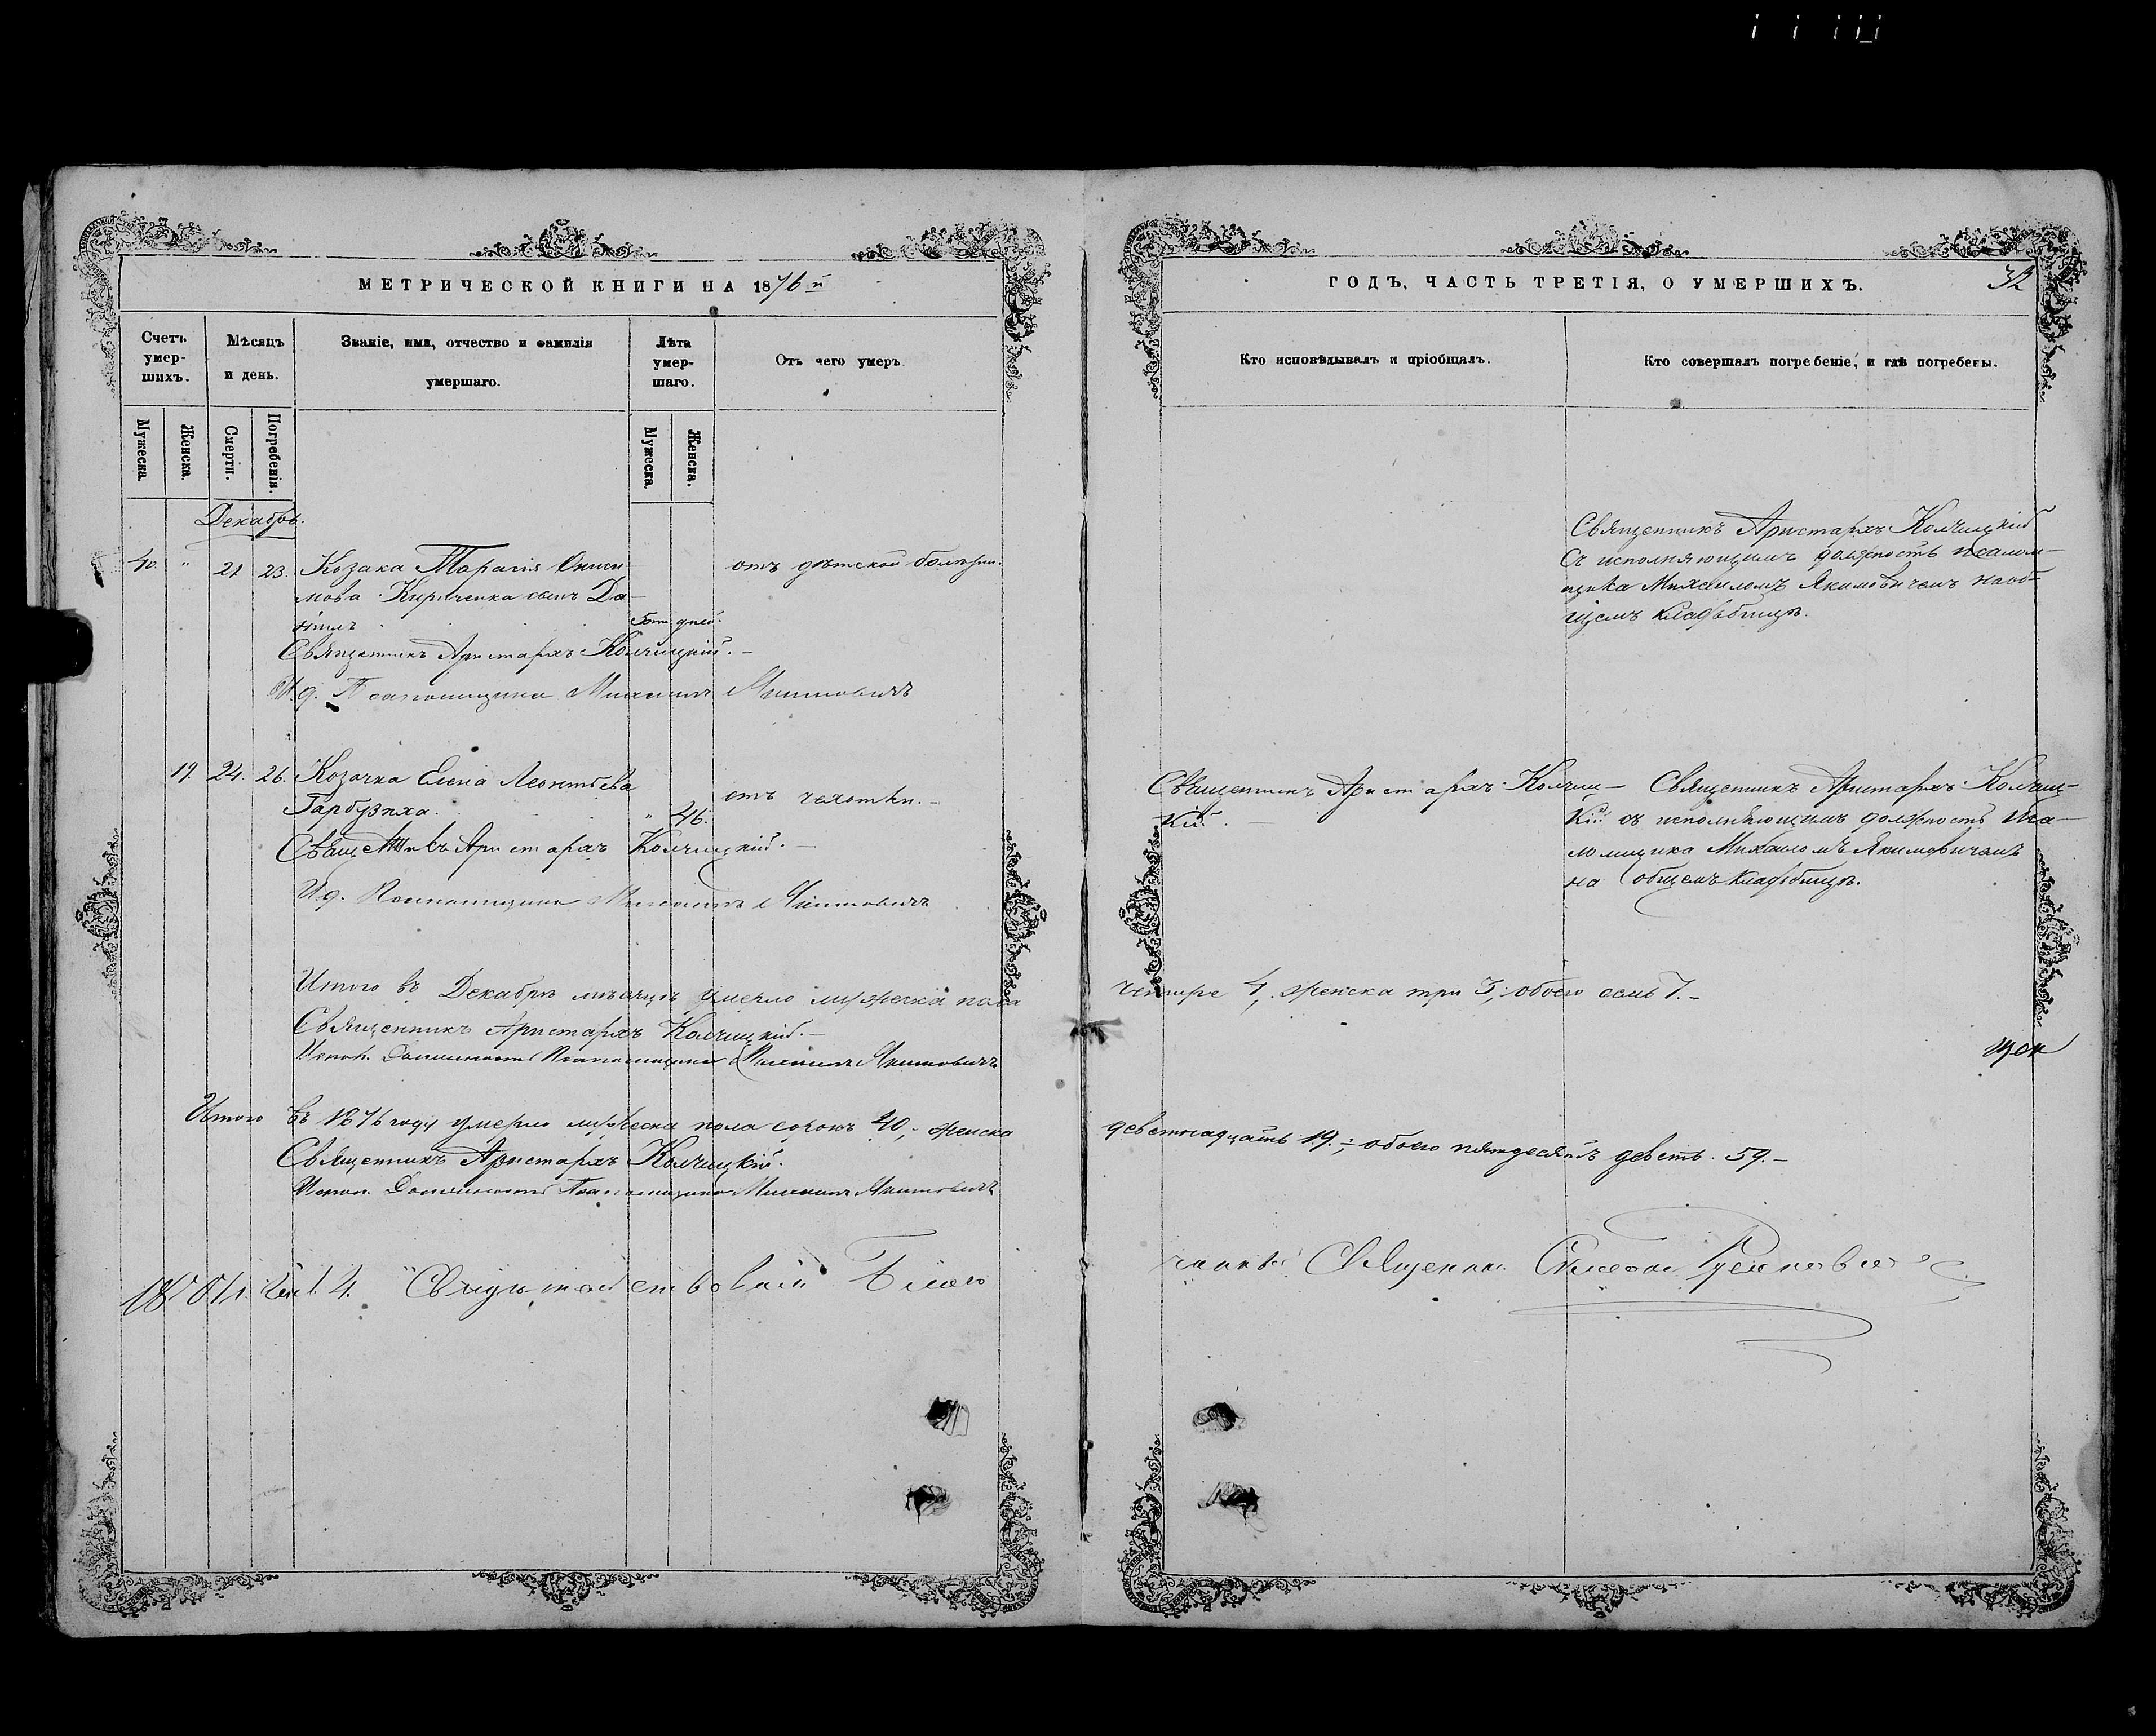 МЕТРИЧЕСКОЙ КНИГИ НА 1876 й
ГОДЪ, ЧАСТЬ ТРЕТІЯ, О УМЕРШИХЪ.
32
Счетъ умер-шихъ.
Мѣсяцъ и день.
Званіе, имя, отчество и фамилія умершаго.
Лѣта умер-шаго.
Отъ чего умеръ
Кто исповѣдывалъ и пріобщалъ.
Кто совершалъ погребеніе, и гдѣ погребены.
Мужеска.
Женска.
Смерти.
Погребенія.
Мужеска.
Женска.
Декабрь.
40. " 21 23. Козака Тарасія Ониси-
мова Кириченка сынъ Да-
ніилъ 5ти дней.
отъ дѣтской болѣзни.
Священникъ Аристархъ Колчицкій
съ исполняющимъ должность псалом-
щика Михаиломъ Якимовичемъ на об-
щемъ кладбищѣ.
Священникъ Аристархъ Колчицкій. –
И. д. Псаломщика Михаилъ Якимовичъ
19. 24. 26. Козачка Елена Леонтьева
Гарбузиха. " 46.
отъ чахотки. –
Священникъ Аристархъ Колчиц–
кій. –
Священникъ Аристархъ Колчиц–
кій съ исполняющимъ должность Пса–
ломщика Михаиломъ Якимовичемъ
на общемъ кладбищѣ.
Священникъ Аристархъ Колчицкій. –
И. д. Псаломщика Михаилъ Якимовичъ
Итого въ Декабрѣ мѣсяцѣ умерло мужеска пола
четыре 4, женска три 3, обоего семь 7. –
Священникъ Аристархъ Колчицкій. –
Испол. Должность Псаломщика Михаилъ Якимовичъ
Итого въ 1876 году умерло мужеска пола сорокъ 40, – женска
девятнадцать 19. –; обоего пятдесятъ девять. 59. –
Священникъ Аристархъ Колчицкій.
Испол. Должность Псаломщика Михаилъ Якимовичъ
Свидѣтельствовалъ Благо
чинный Священникъ